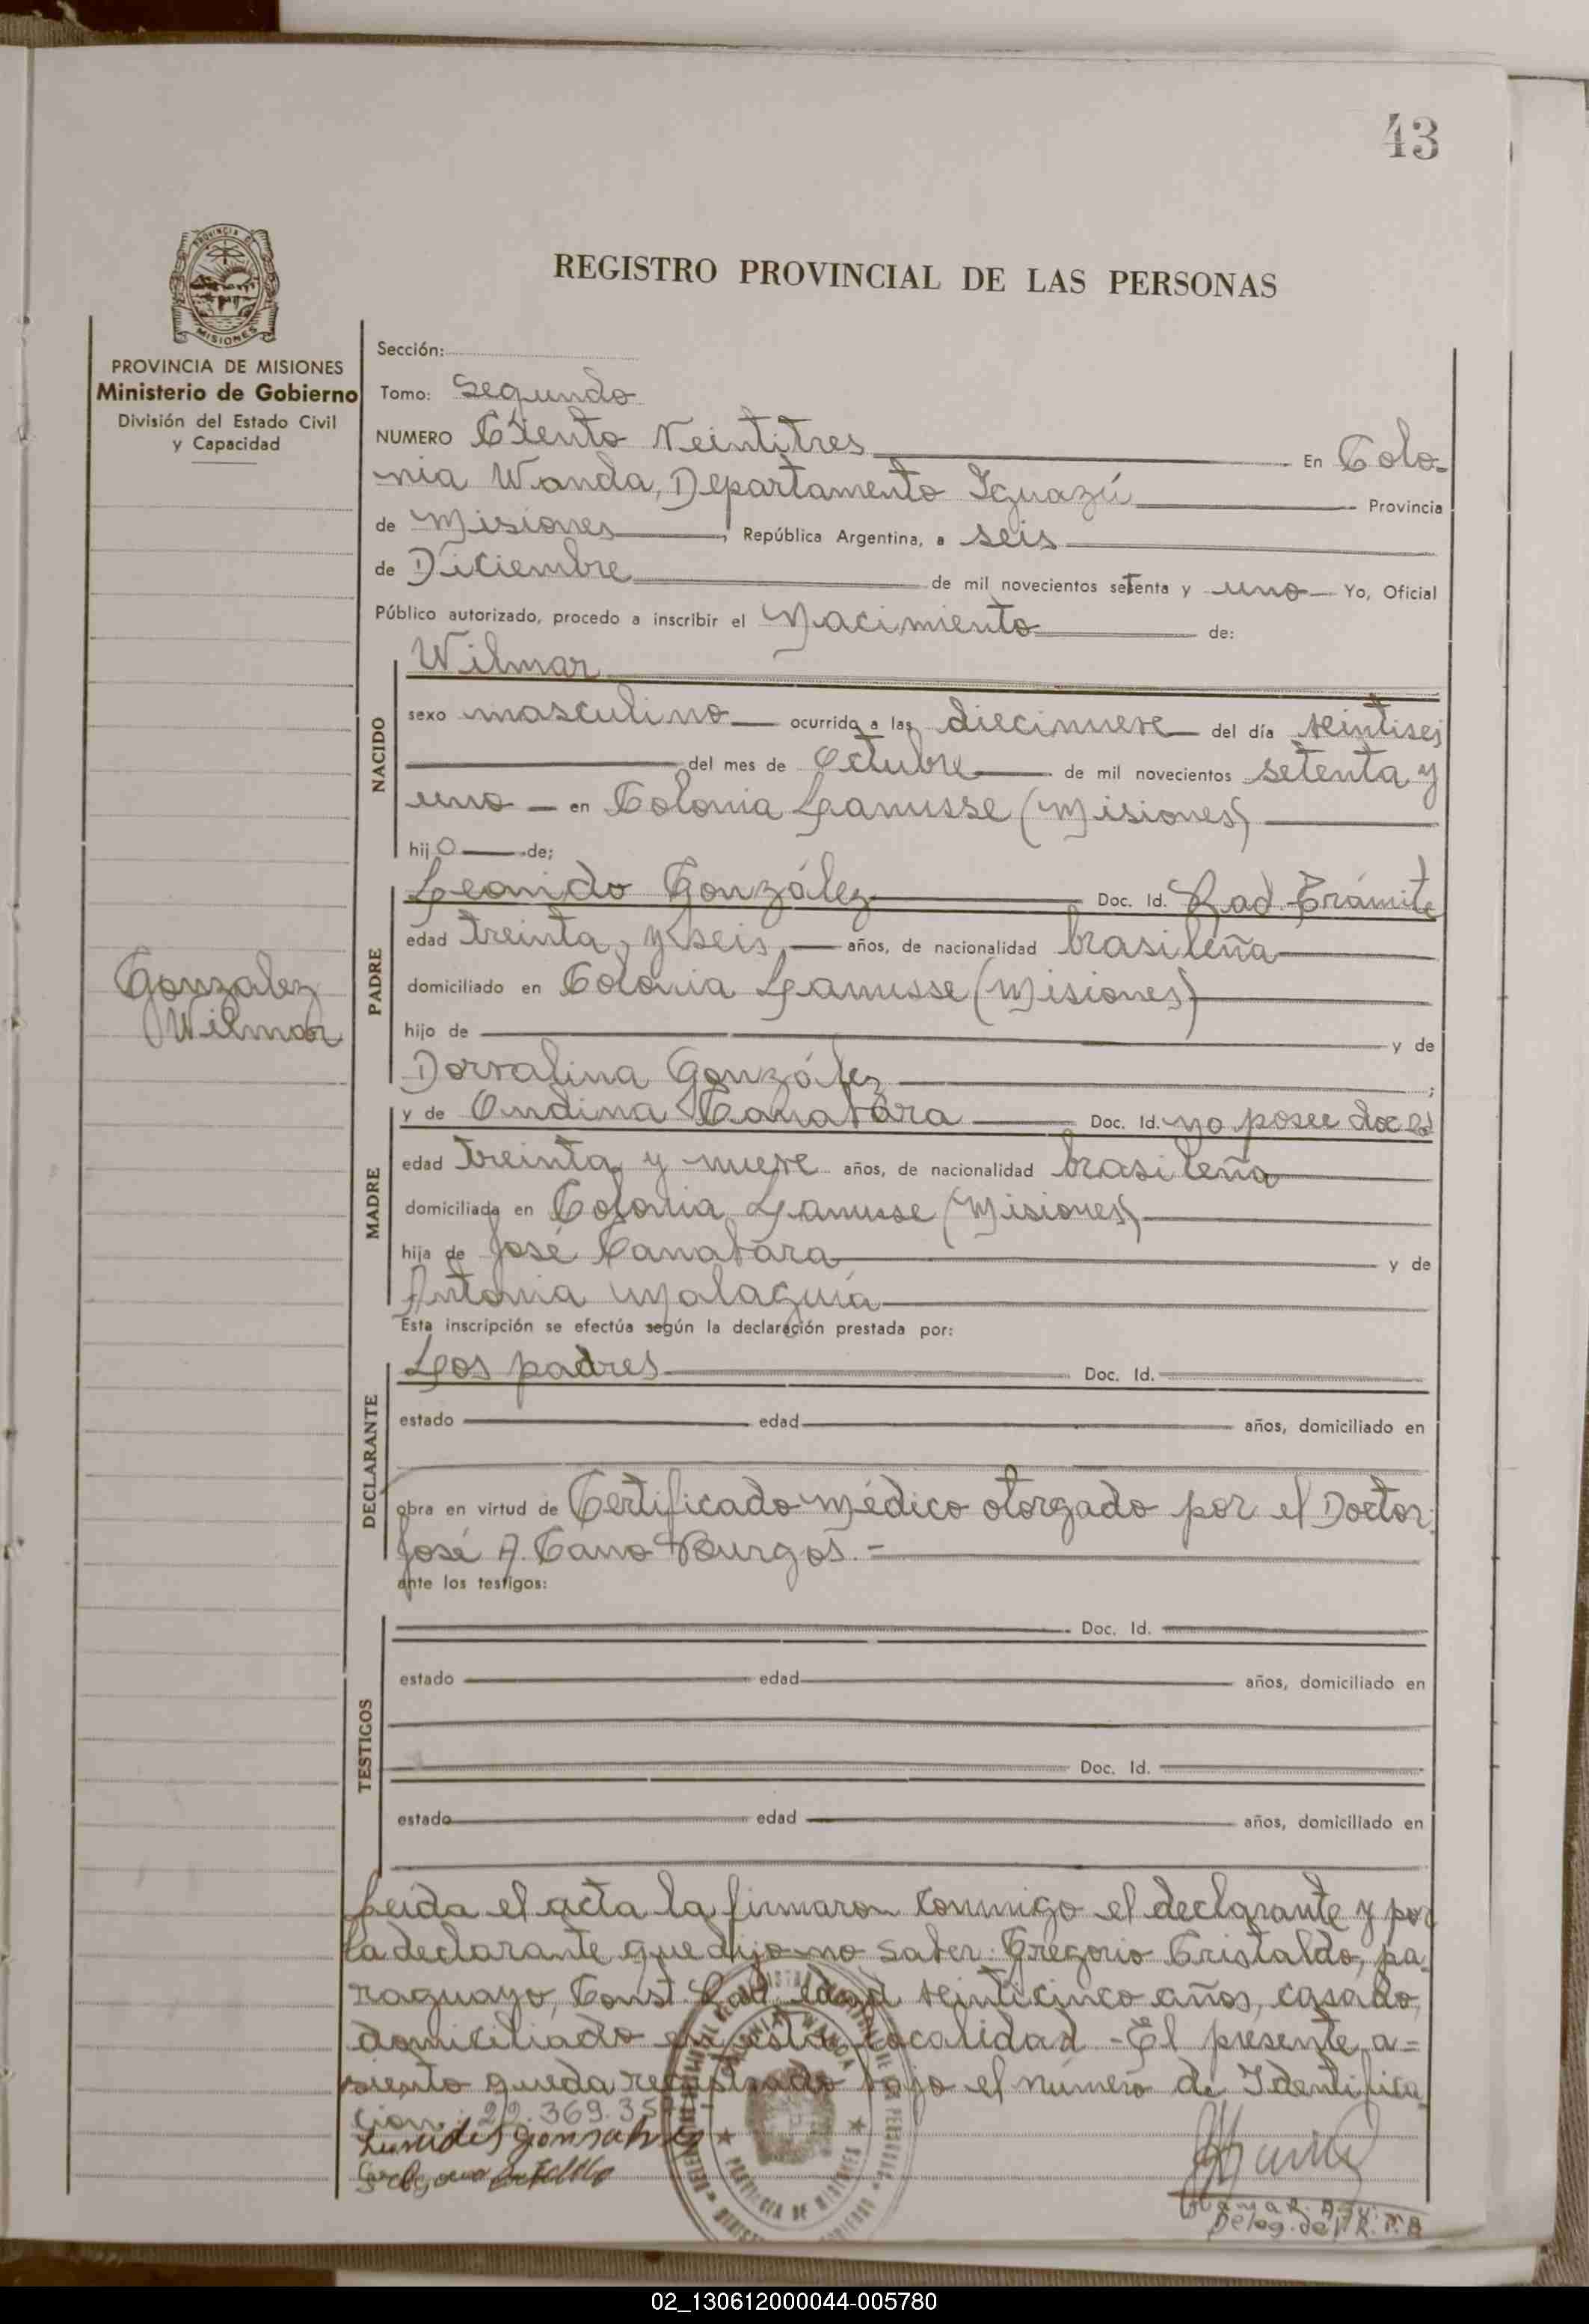 43
PROVINCIA DE
MISIONES
REGISTRO PROVINCIAL DE LAS PERSONAS
PROVINCIA DE MISIONES
Ministerio de Gobierno
División del Estado Civil
y Capacidad
Gonzalez
Wilmar
Sección:
Tomo: Segundo
NUMERO Ciento Veintitres En Colo-
nia Wanda, Departamento Iguazú Provincia
de Misiones, República Argentina, a seis
de Diciembre de mil novecientos setenta y uno Yo, Oficial
Público autorizado, procedo a inscribir el Nacimiento de:
NACIDO
Wilmar
sexo masculino ocurrido a las diecinueve del día veintiseis
del mes de Octubre de mil novecientos setenta y
uno en Colonia Lanusse (Misiones)
hijo de;
PADRE
Leonido González Doc. Id. Rad. Trámite
edad treinta y seis años, de nacionalidad brasileña
domiciliado en Colonia Lanusse (Misiones)
hijo de y de
Dorvalina González;
MADRE
y de Ondina Doc. Id. no posee doc Id
edad treinta y nueve años, de nacionalidad brasileña
domiciliada en Colonia Lanusse (Misiones)
hija de José y de
Antonia Malaguia
Esta inscripción se efectúa según la declaración prestada por:
DECLARANTE
Los padres Doc. Id.
estado edad años, domiciliado en
obra en virtud de Certificado Médico otorgado por el Doctor:
José A. Cano Burgos.-
ante los testigos:
TESTIGOS
Doc. Id.
estado edad años, domiciliado en
Doc. Id.
estado edad años, domiciliado en
Leída el acta la firmaron conmigo el declarante y por
la declarante que dijo no saber: Gregorio Cristaldo, pa-
raguayo, Const. Rad. edad veinticinco años, casado,
domiciliado en esta localidad -El presente a=
siento queda registrado bajo el número de Identifica
ción: 22.369.357
PROVINCIA DE MISIONES
Deleg. del R.P.P.
02_130612000044-005780